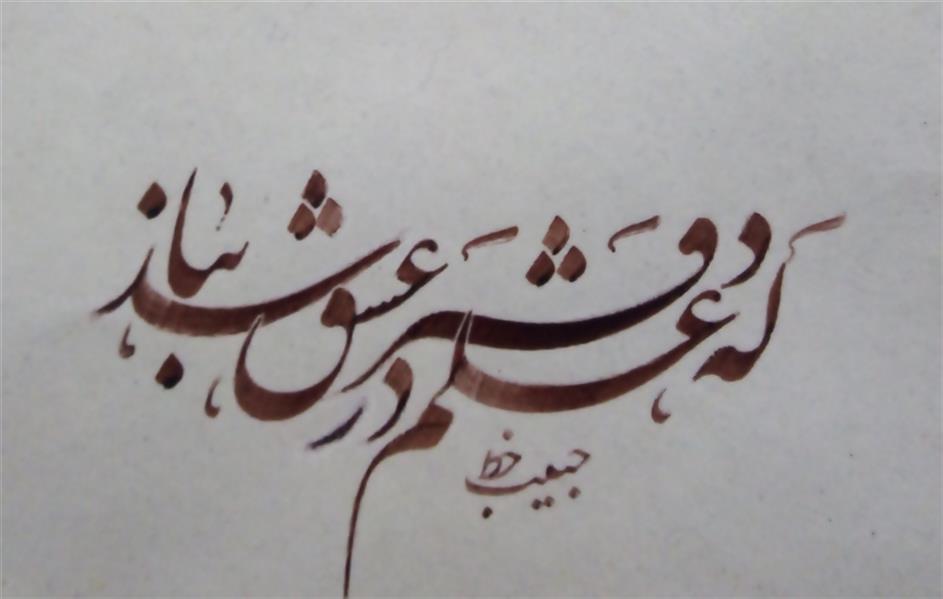 که علم عشق در دفتر نباشد
حبیب خط